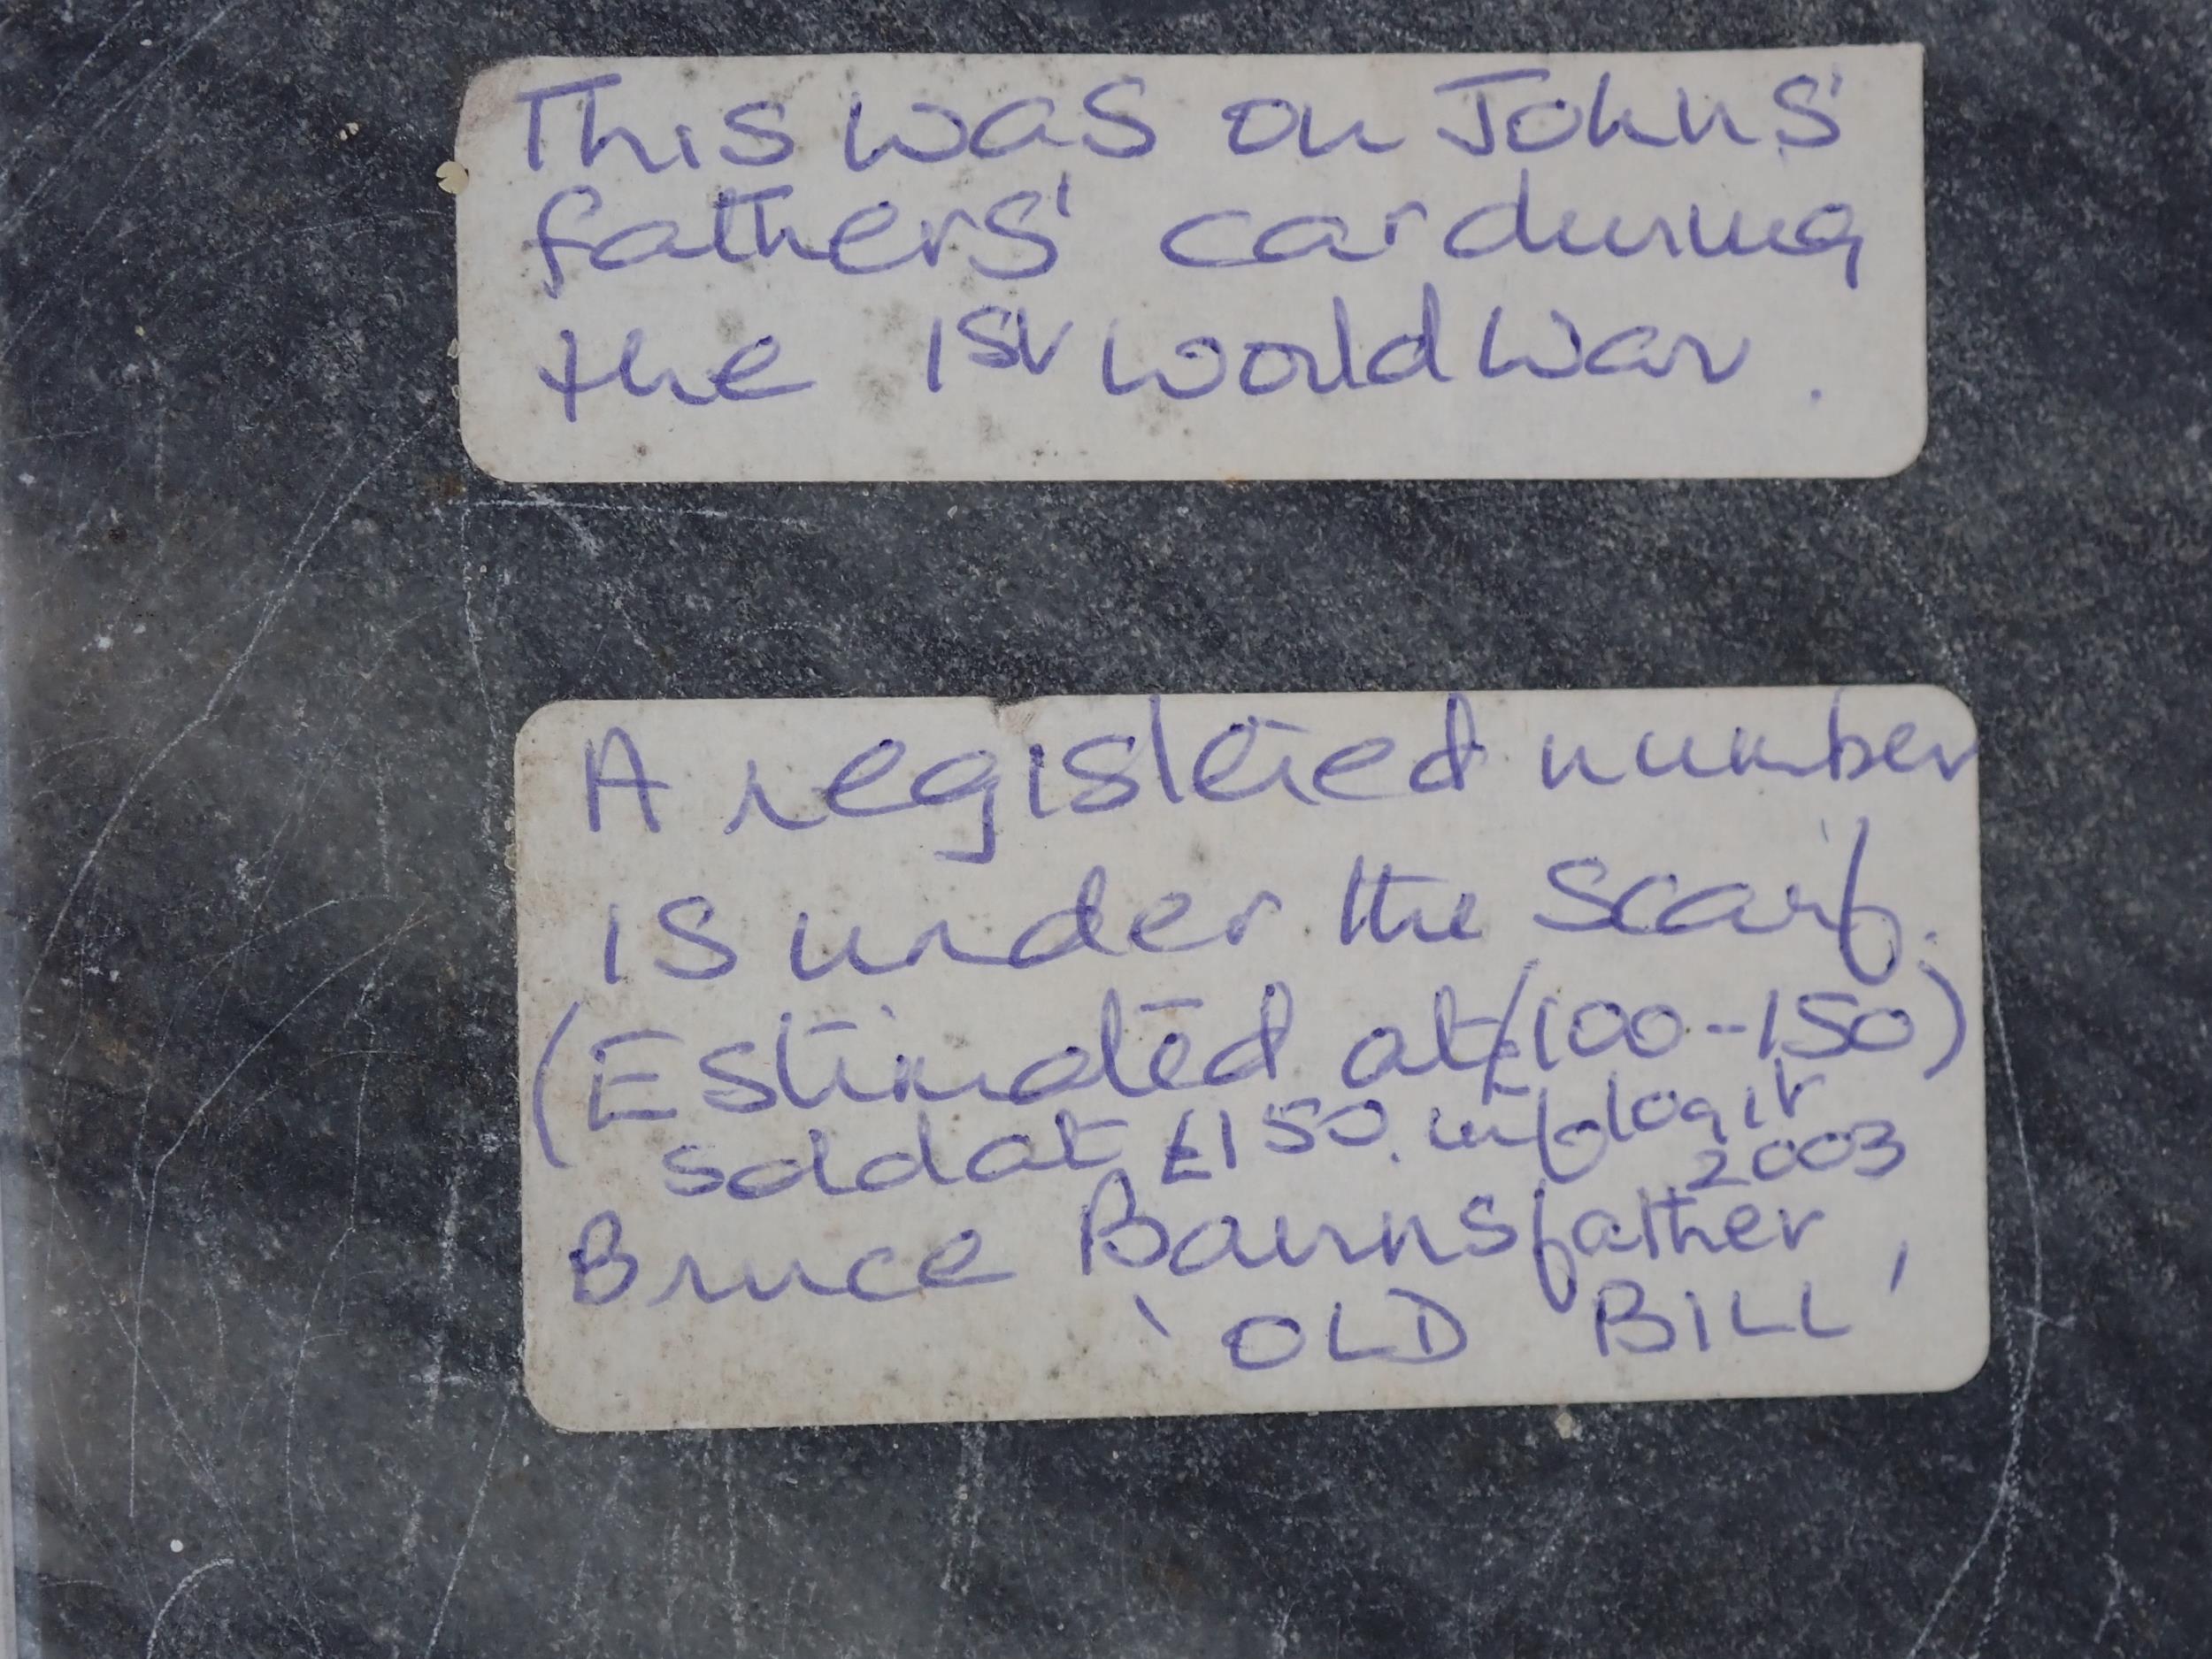 This was on Johns'
fathers' car during
the 1st World War.
A registered number
is under the scarf.
(Estimated at £100-150)
sold at £150.
2003
Bruce Bairnsfather
'OLD BILL'